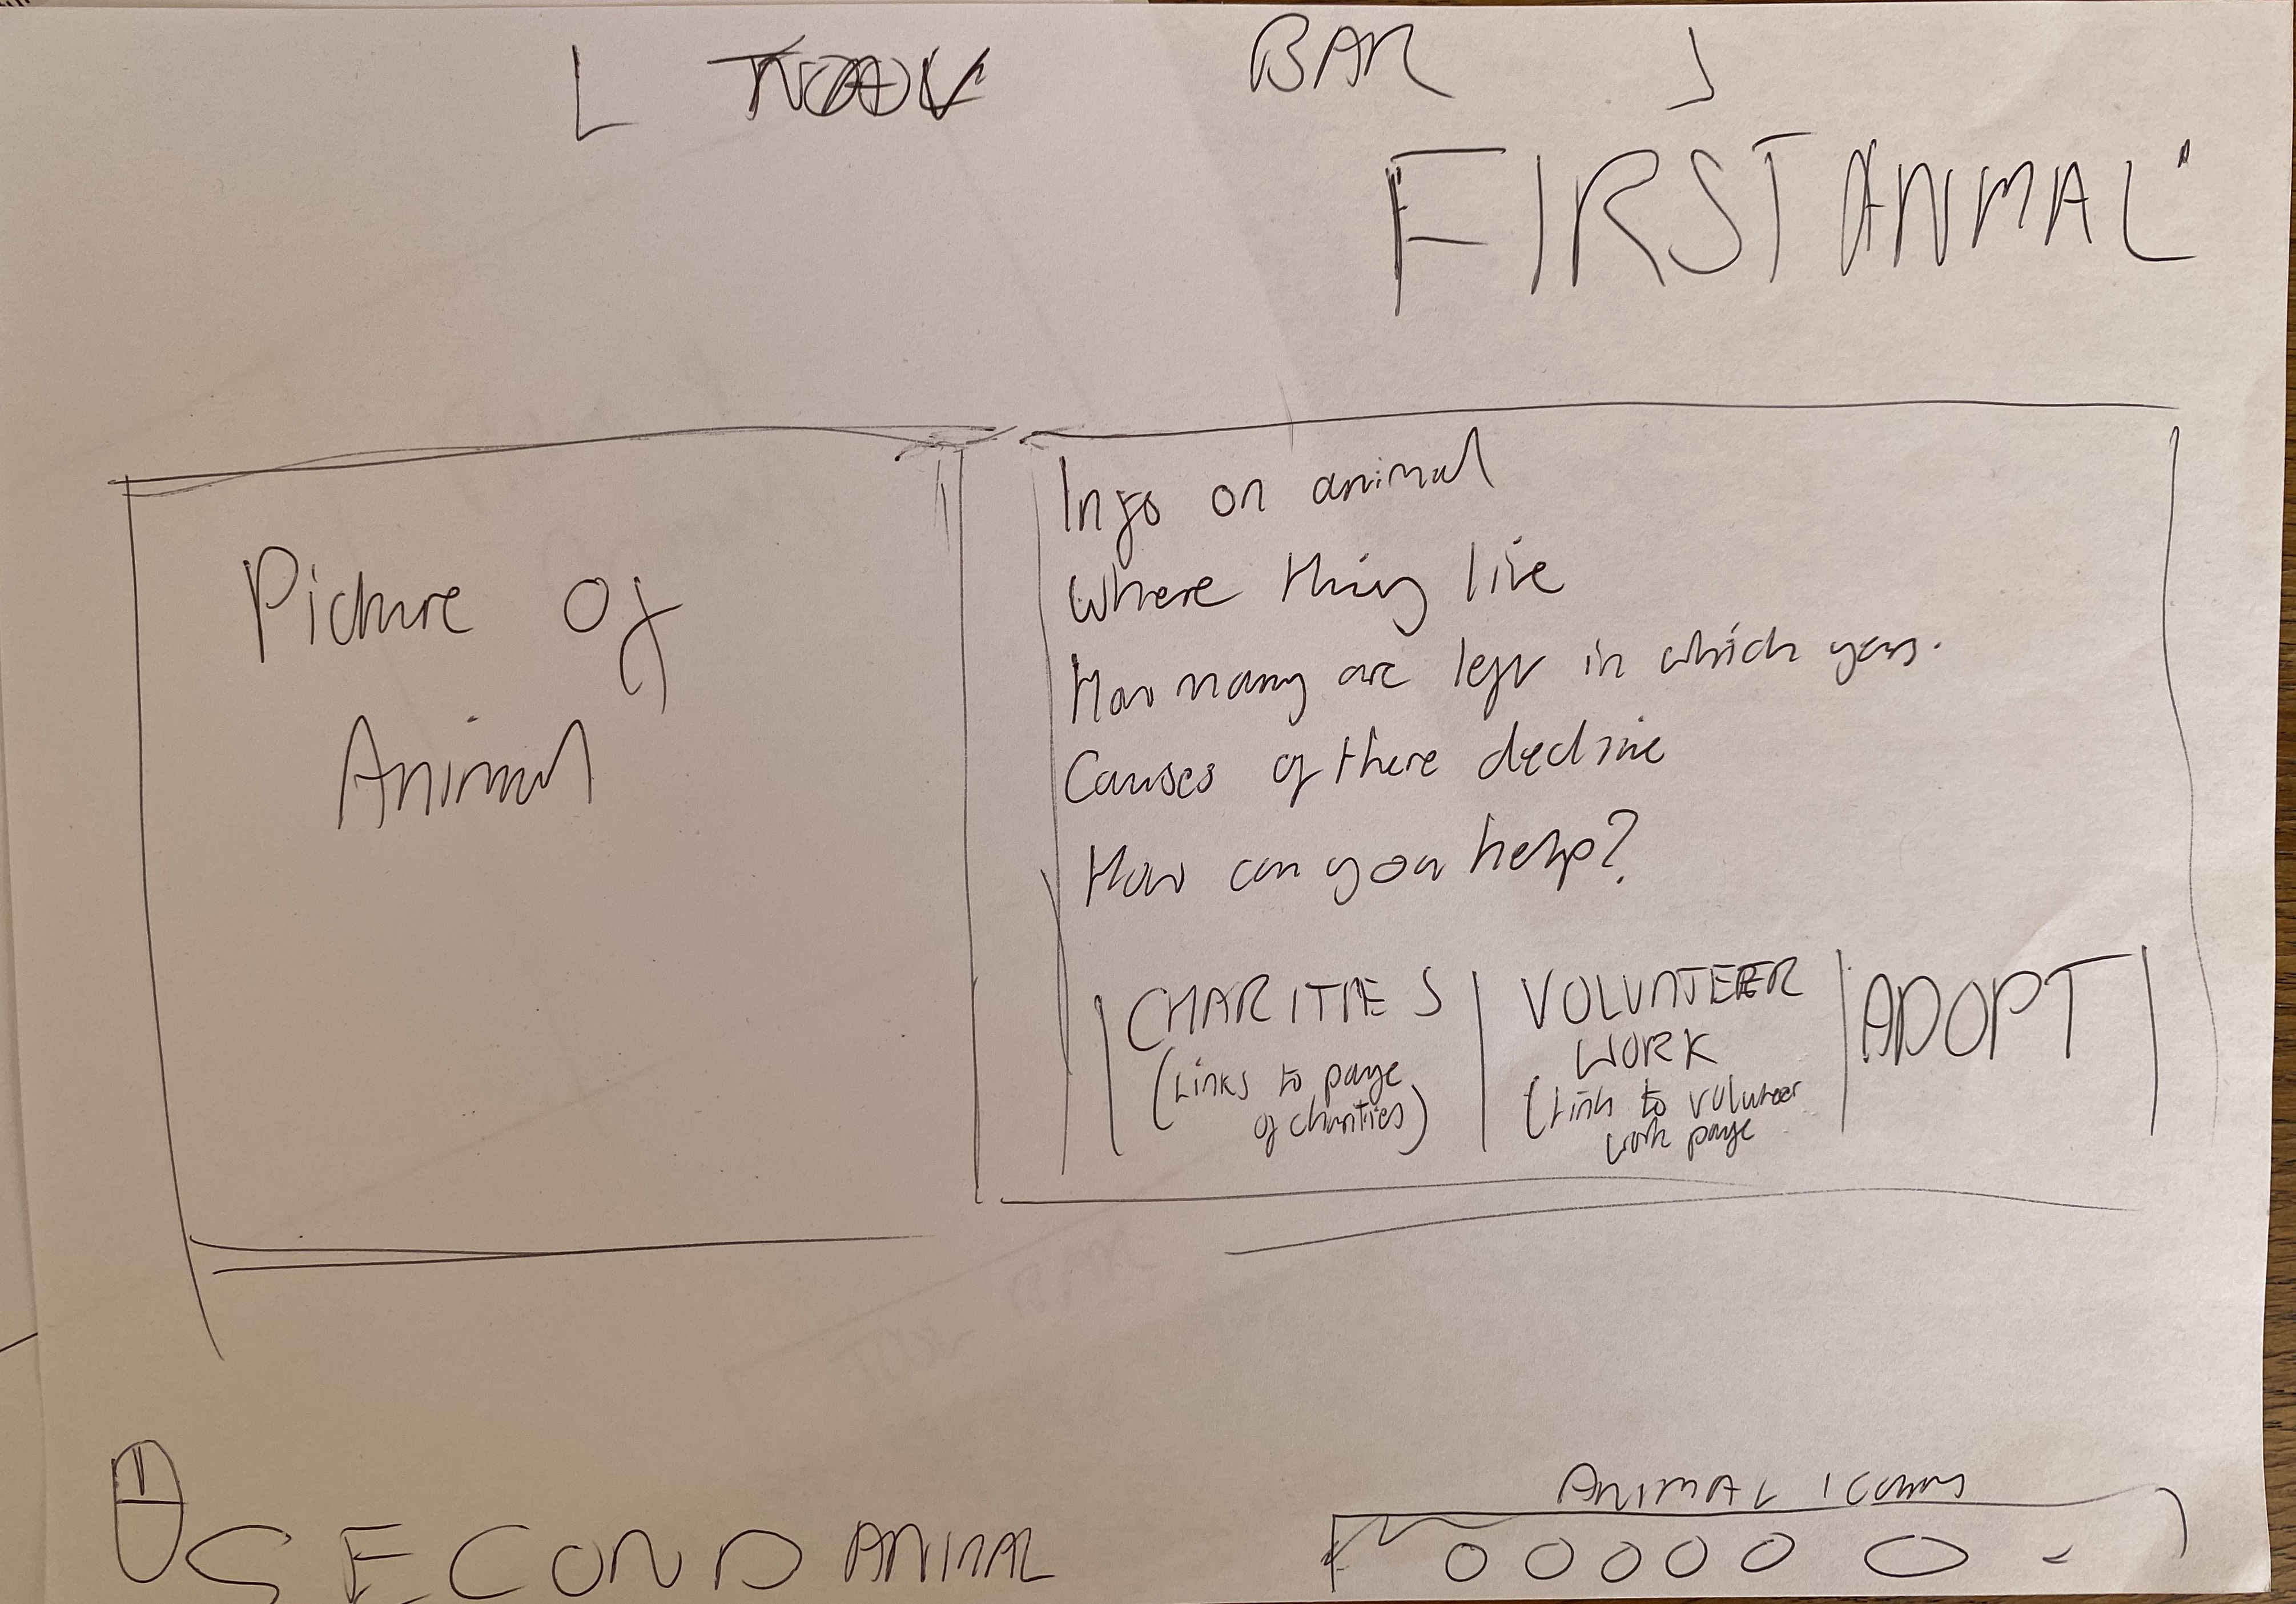 NAV BAR
FIRST ANIMAL
Picture of
Animal
Info on animal
Where thiny live
How many are left in which years.
Causes of there decline
How can you help?
CHARITIES
(Links to page
of charities)
VOLUNTEER
WORK
(Link to volunteer
work page
ADOPT
SECOND ANIMAL
ANIMAL ICONS